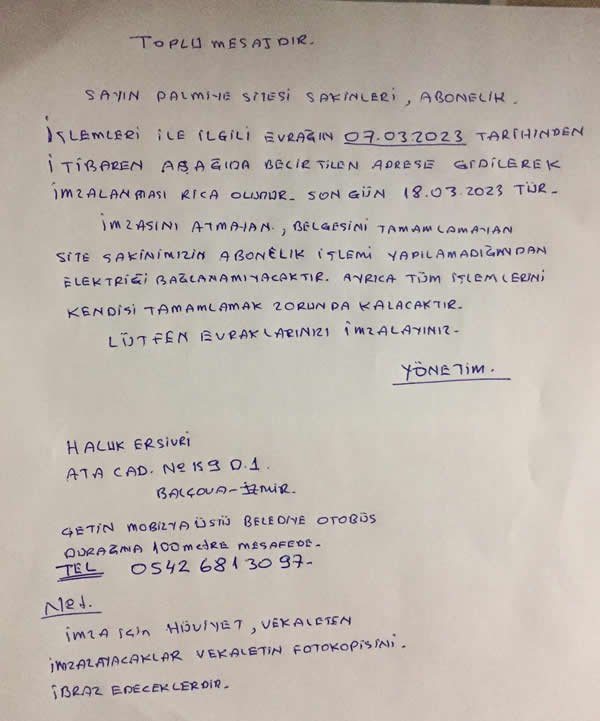 TOPLU MESAJDIR.
SAYIN PALMİYE SİTESİ SAKİNLERİ, ABONELİK.
İŞLEMLERİ İLE İLGİLİ EVRAĞIN 07.03.2023 TARİHİNDEN
İTİBAREN AŞAĞIDA BELİRTİLEN ADRESE GİDİLEREK
İMZALANMASI RİCA OLUNUR. SON GÜN 18.03.2023 TÜR.
İMZASINI ATMAYAN, BELGESİNİ TAMAMLAMAYAN
SİTE SAKİNİMİZİN ABONELİK İŞLEMİ YAPILAMADIĞINDAN
ELEKTRİĞİ BAĞLANAMIYACAKTIR. AYRICA TÜM İŞLEMLERİNİ
KENDİSİ TAMAMLAMAK ZORUNDA KALACAKTIR.
LÜTFEN EVRAKLARINIZI İMZALAYINIZ.
YÖNETİM.
HALUK ERSİVRİ
ATA CAD. No 159 D.1.
BALÇOVA-İZMİR.
ÇETİN MOBİLYA ÜSTÜ BELEDİYE OTOBÜS
DURAĞINA 100 metre MESAFEDE.
TEL 0542 681 30 97-
Not.
İMZA İÇİN HÜVİYET, VEKALETEN
İMZALAYACAKLAR VEKALETİN FOTOKOPİSİNİ.
İBRAZ EDECEKLERDİR.